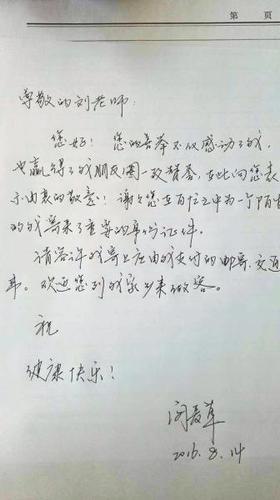 第 页
尊敬的刘老师:
您好! 您的善举不仅感动了我,
也赢得了我朋友圈一致赞誉,在此向您表
示由衷的敬意! 谢谢您在百忙之中为一个陌生
的我寄来了重要的身份证件。
请容许我寄上应由我支付的邮寄、交通
费。欢迎您到我家乡来做客。
祝
健康快乐!
闵春草
2016.8.14